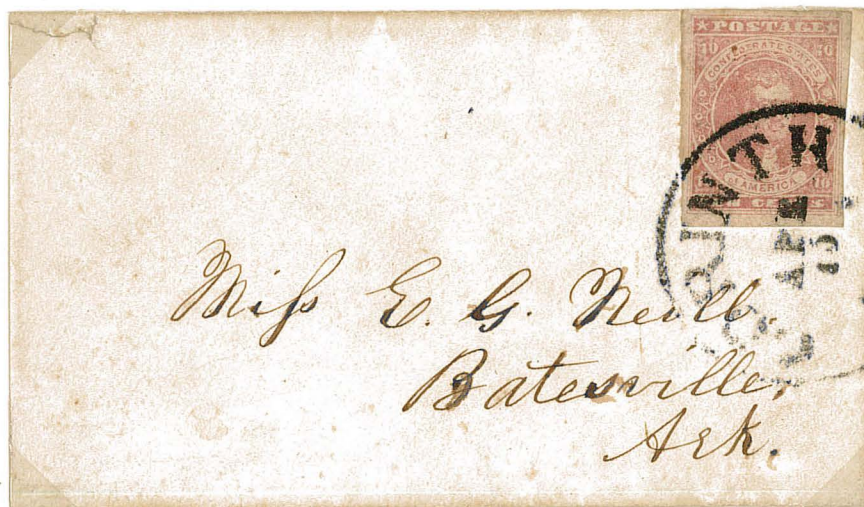 POSTAGE
10 10
CONFEDERATE STATES
AMERICA
CENTS
CORINTH
Miss E. G. Neill.
Batesville,
Ark.